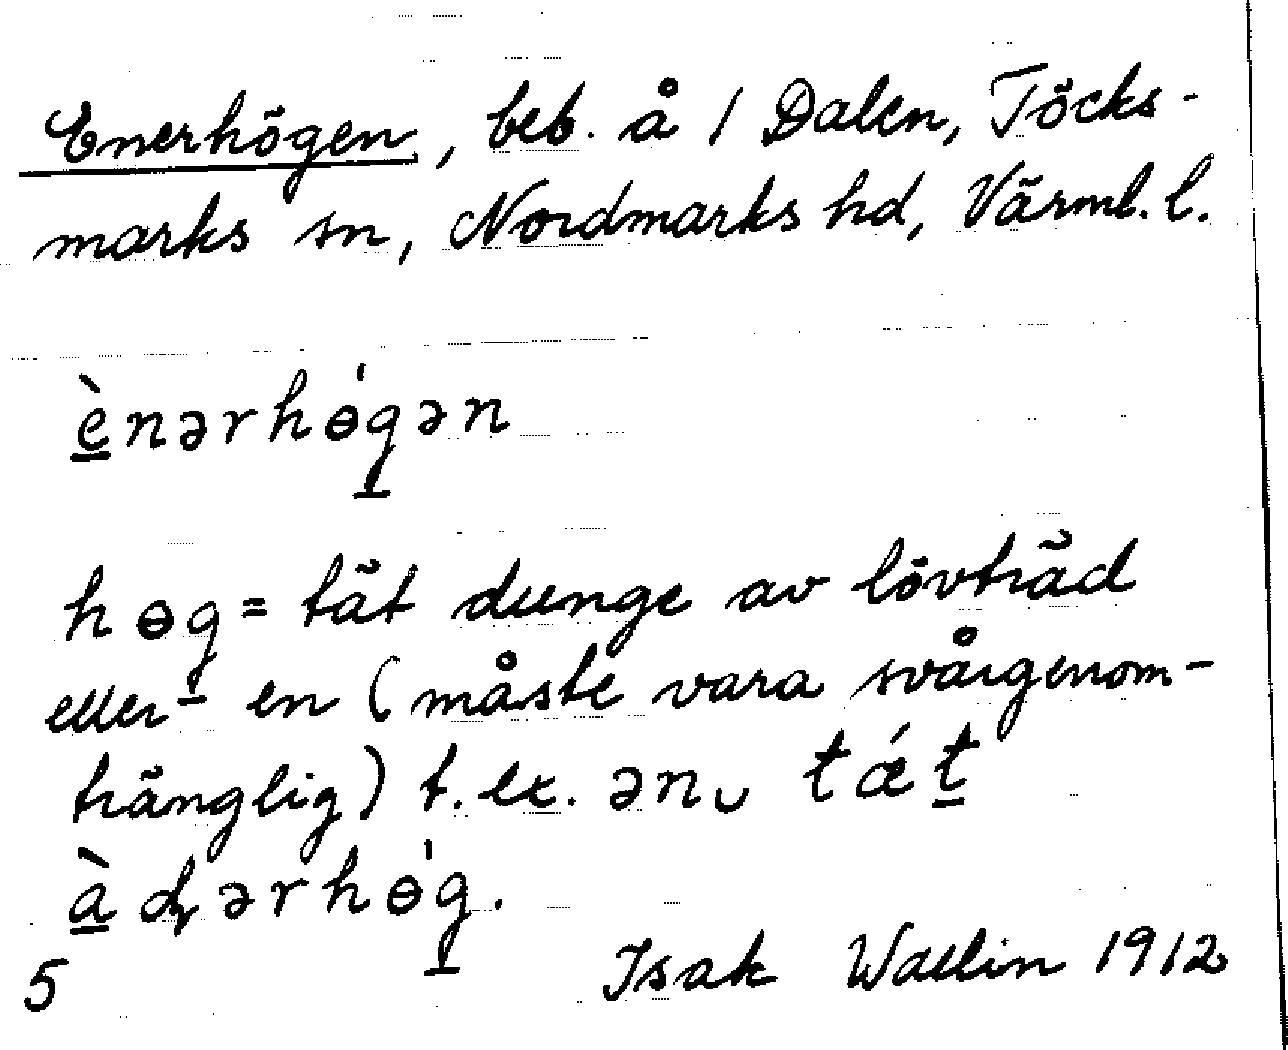 Enerhögen, beb. å 1 Dalen, Töcks-
marks sn, Nordmarks hd, Värml. l.
è̱nərhɵ́g̱ən
hɵg̱ = tät dunge av lövträd
eller en (måste vara svårgenom-
tränglig) t. ex. ən‿ tǽṯ
à̱ɖərhɵ́g̱.
5 Isak Wallin 1912